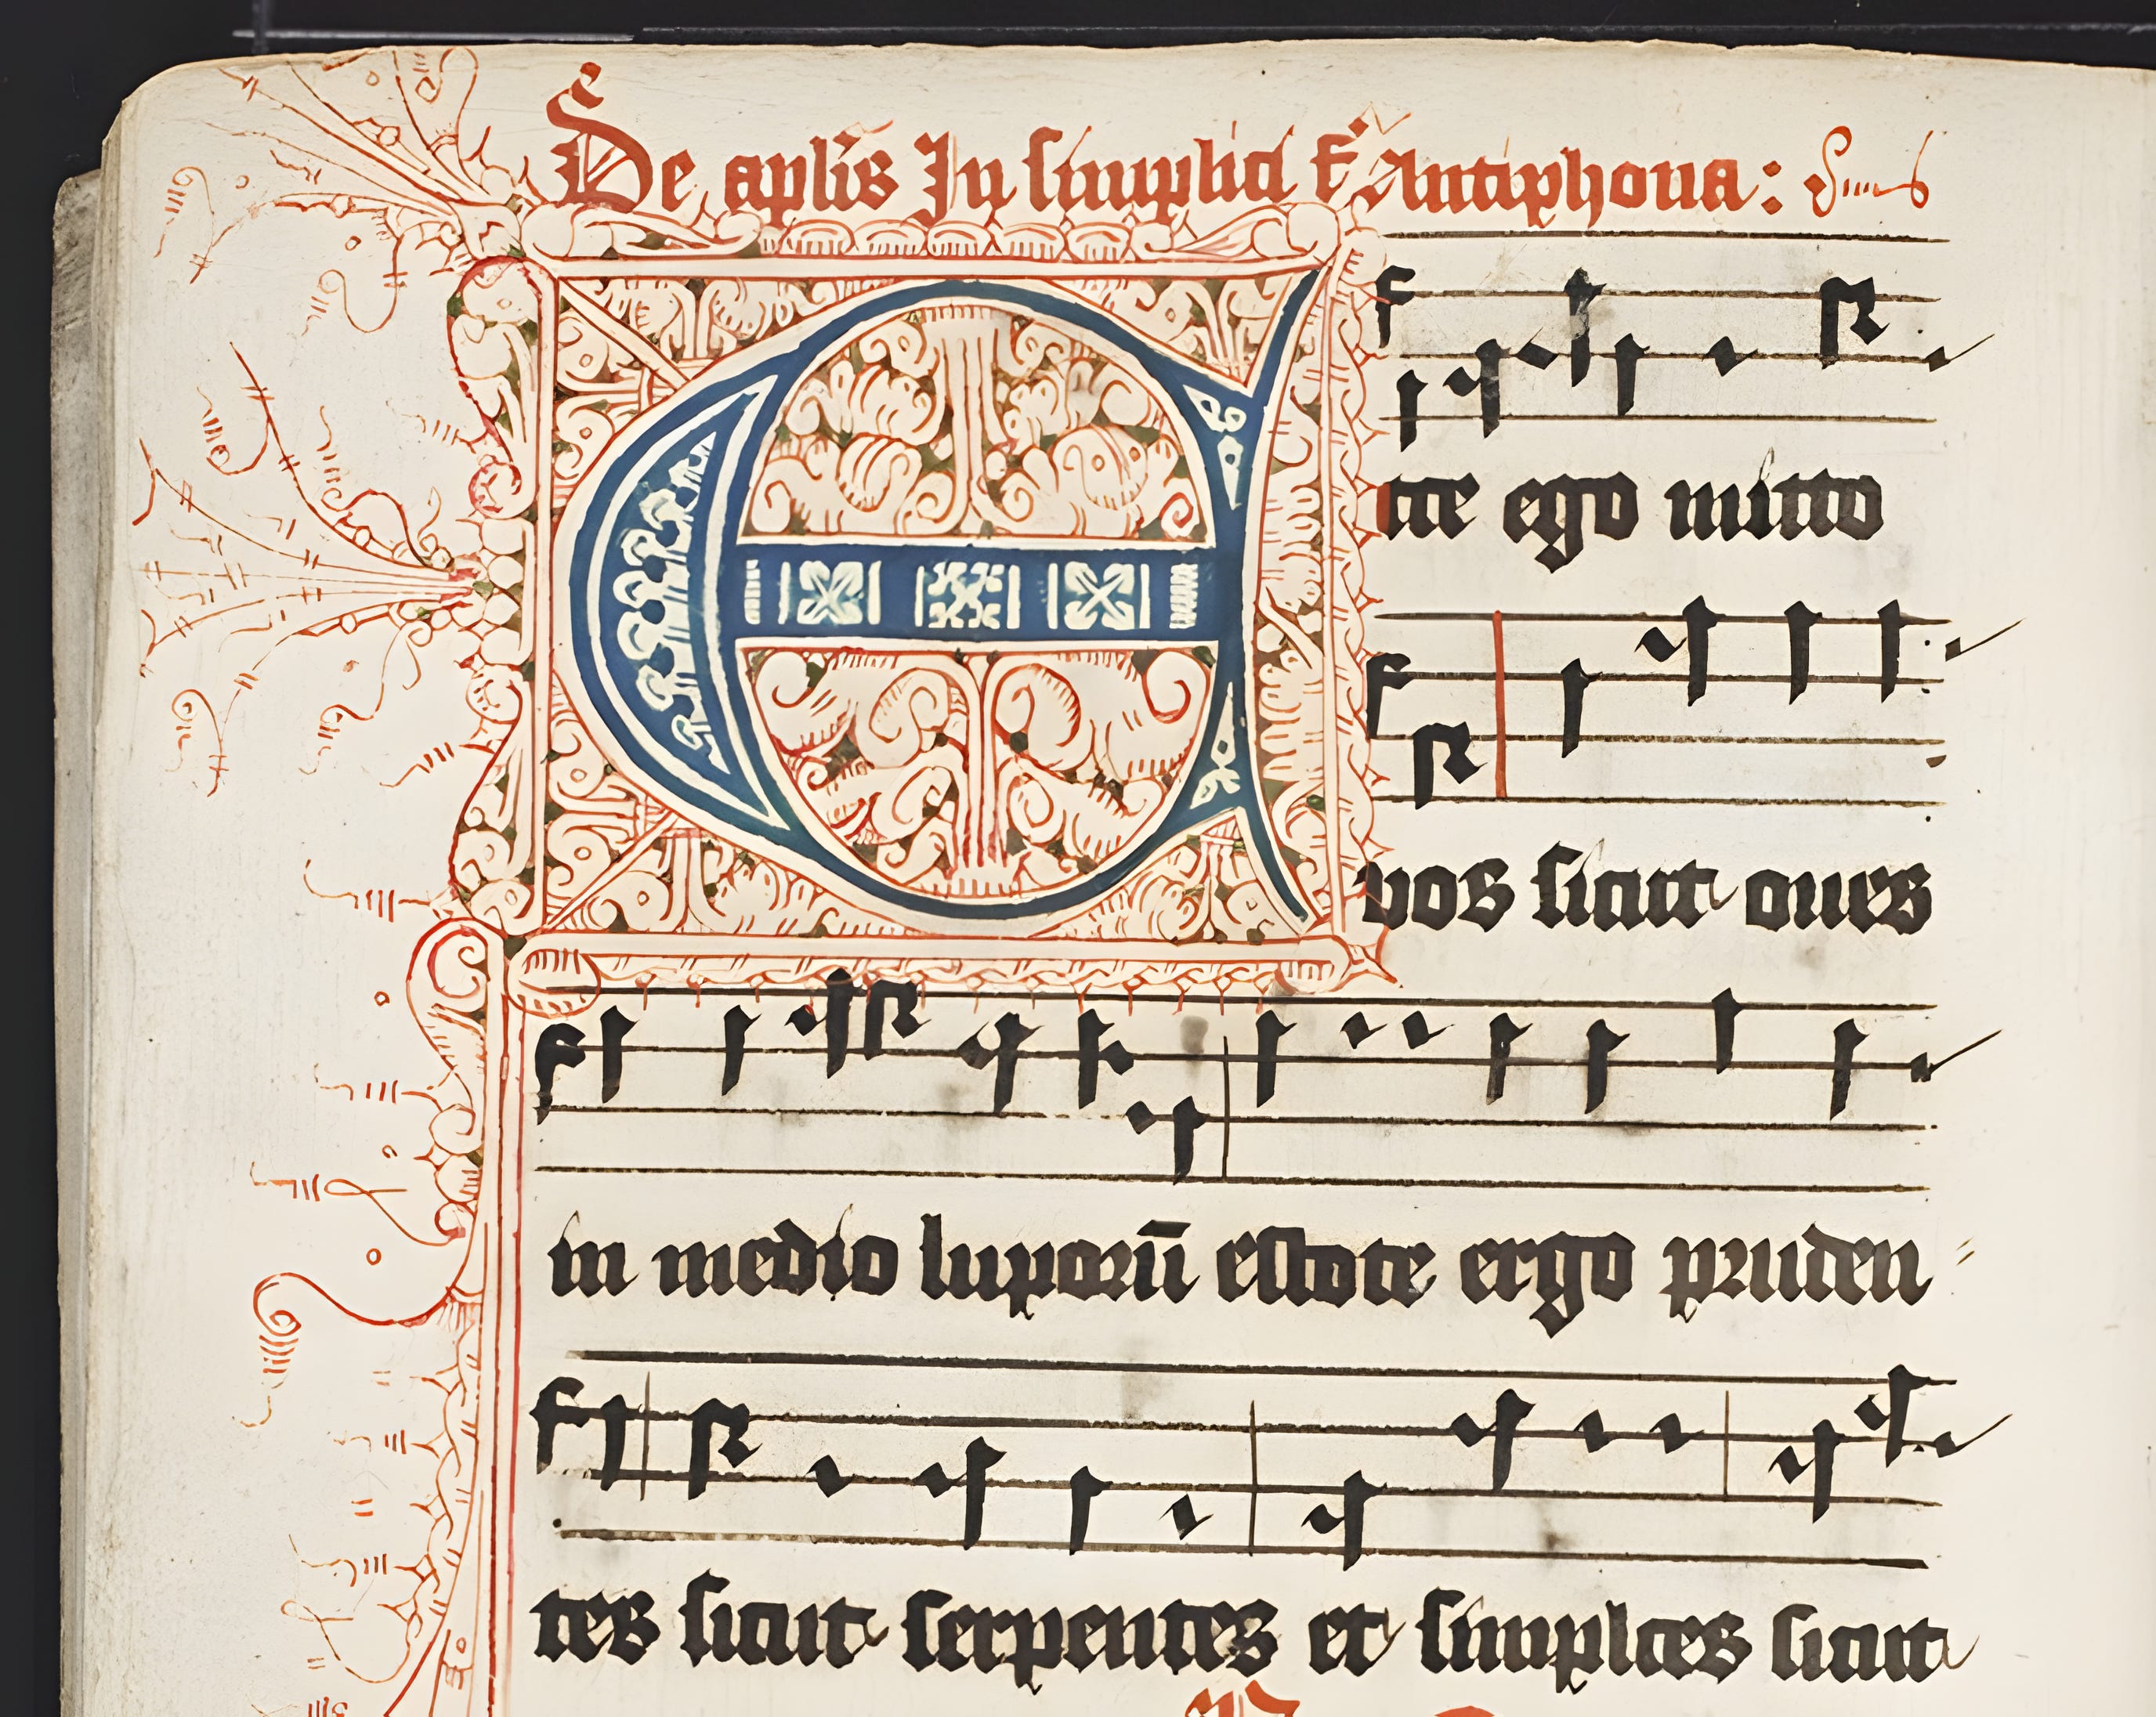 De aplīs In simplici f Antiphona:
Ecce ego mitto
vos sicut oues
in medio luporū estote ergo pruden
tes sicut serpentes et simplices sicut